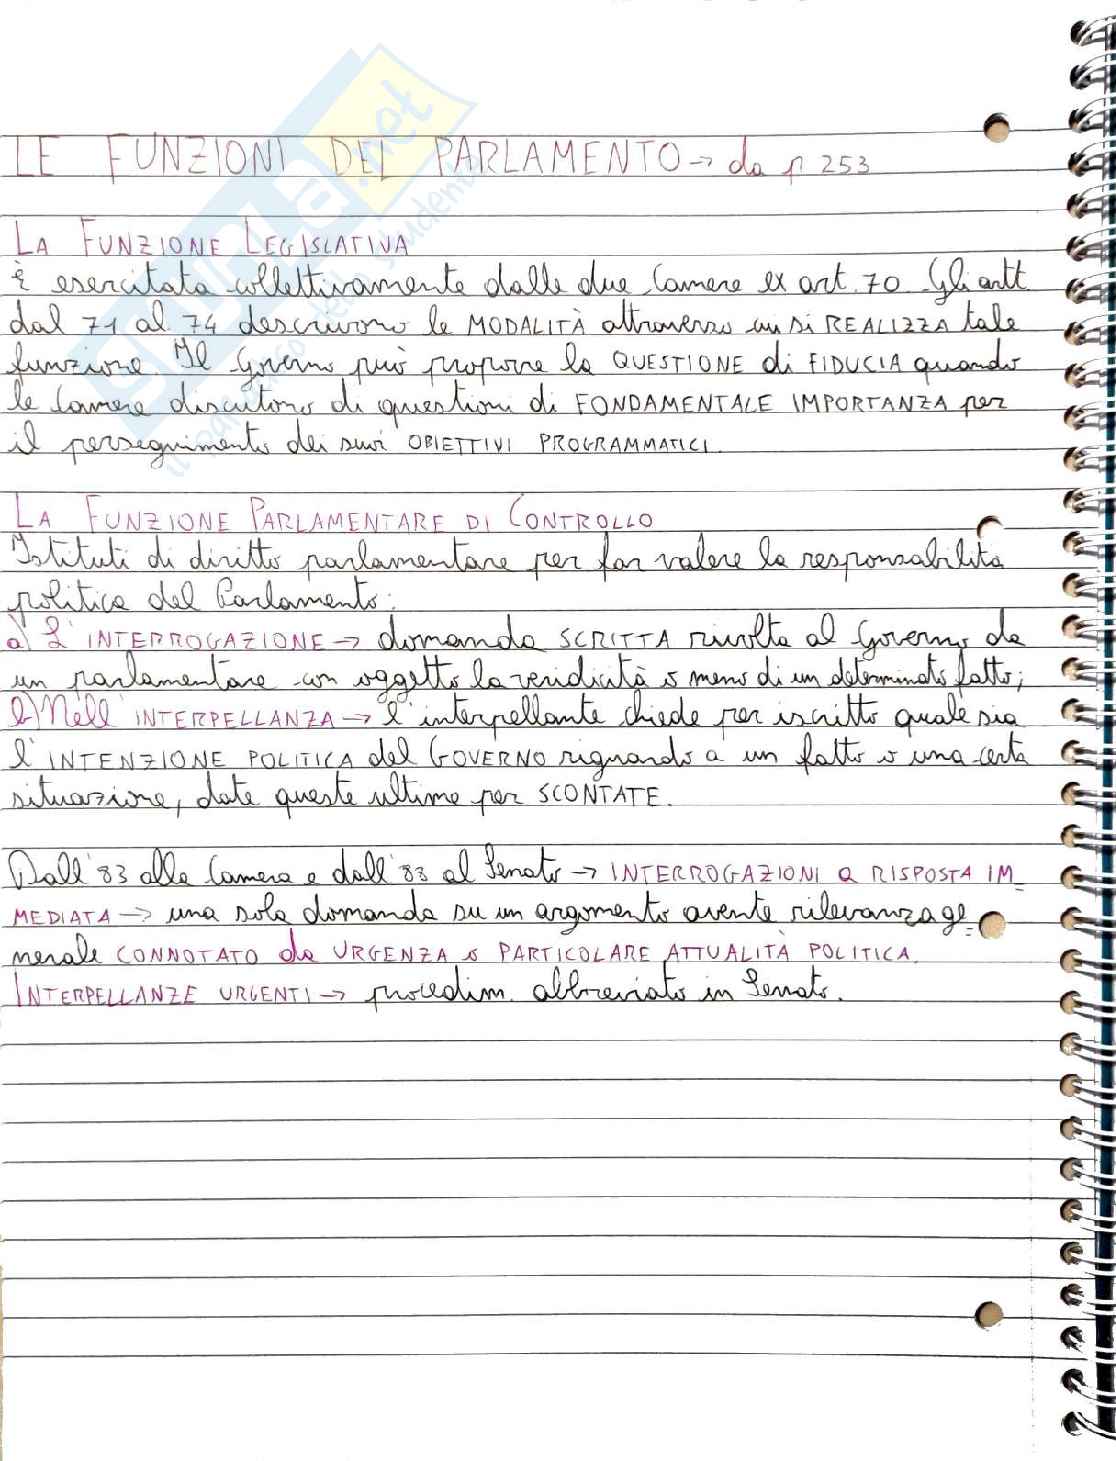 LE FUNZIONI DEL PARLAMENTO → da p 253
LA FUNZIONE LEGISLATIVA
È esercitata collettivamente dalle due Camere ex art. 70. Gli artt
dal 71 al 74 descrivono le MODALITÀ attraverso cui SI REALIZZA tale
funzione. Il Governo può proporre la QUESTIONE di FIDUCIA quando
le Camere discutono di questioni di FONDAMENTALE IMPORTANZA per
il perseguimento dei suoi OBIETTIVI PROGRAMMATICI.
LA FUNZIONE PARLAMENTARE DI CONTROLLO
Istituti di diritto parlamentare per far valere la responsabilità
politica del Parlamento:
a) L'INTERROGAZIONE → domanda SCRITTA rivolta al Governo da
un parlamentare con oggetto la veridicità o meno di un determinato fatto;
b) Nell'INTERPELLANZA → l'interpellante chiede per iscritto quale sia
l'INTENZIONE POLITICA del GOVERNO riguardo a un fatto o una certa
situazione, date queste ultime per SCONTATE.
Dall'83 alla Camera e dall'88 al Senato → INTERROGAZIONI a RISPOSTA IM-
MEDIATA → una sola domanda su un argomento avente rilevanza ge=
nerale CONNOTATO da URGENZA o PARTICOLARE ATTUALITÀ POLITICA.
INTERPELLANZE URGENTI → procedim. abbreviato in Senato.